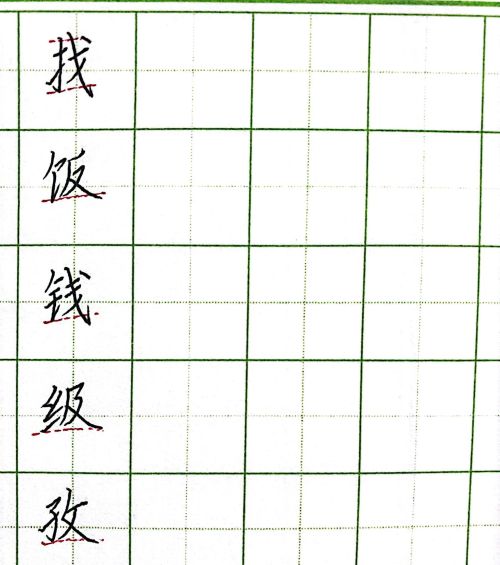 找
饭
钱
级
孜